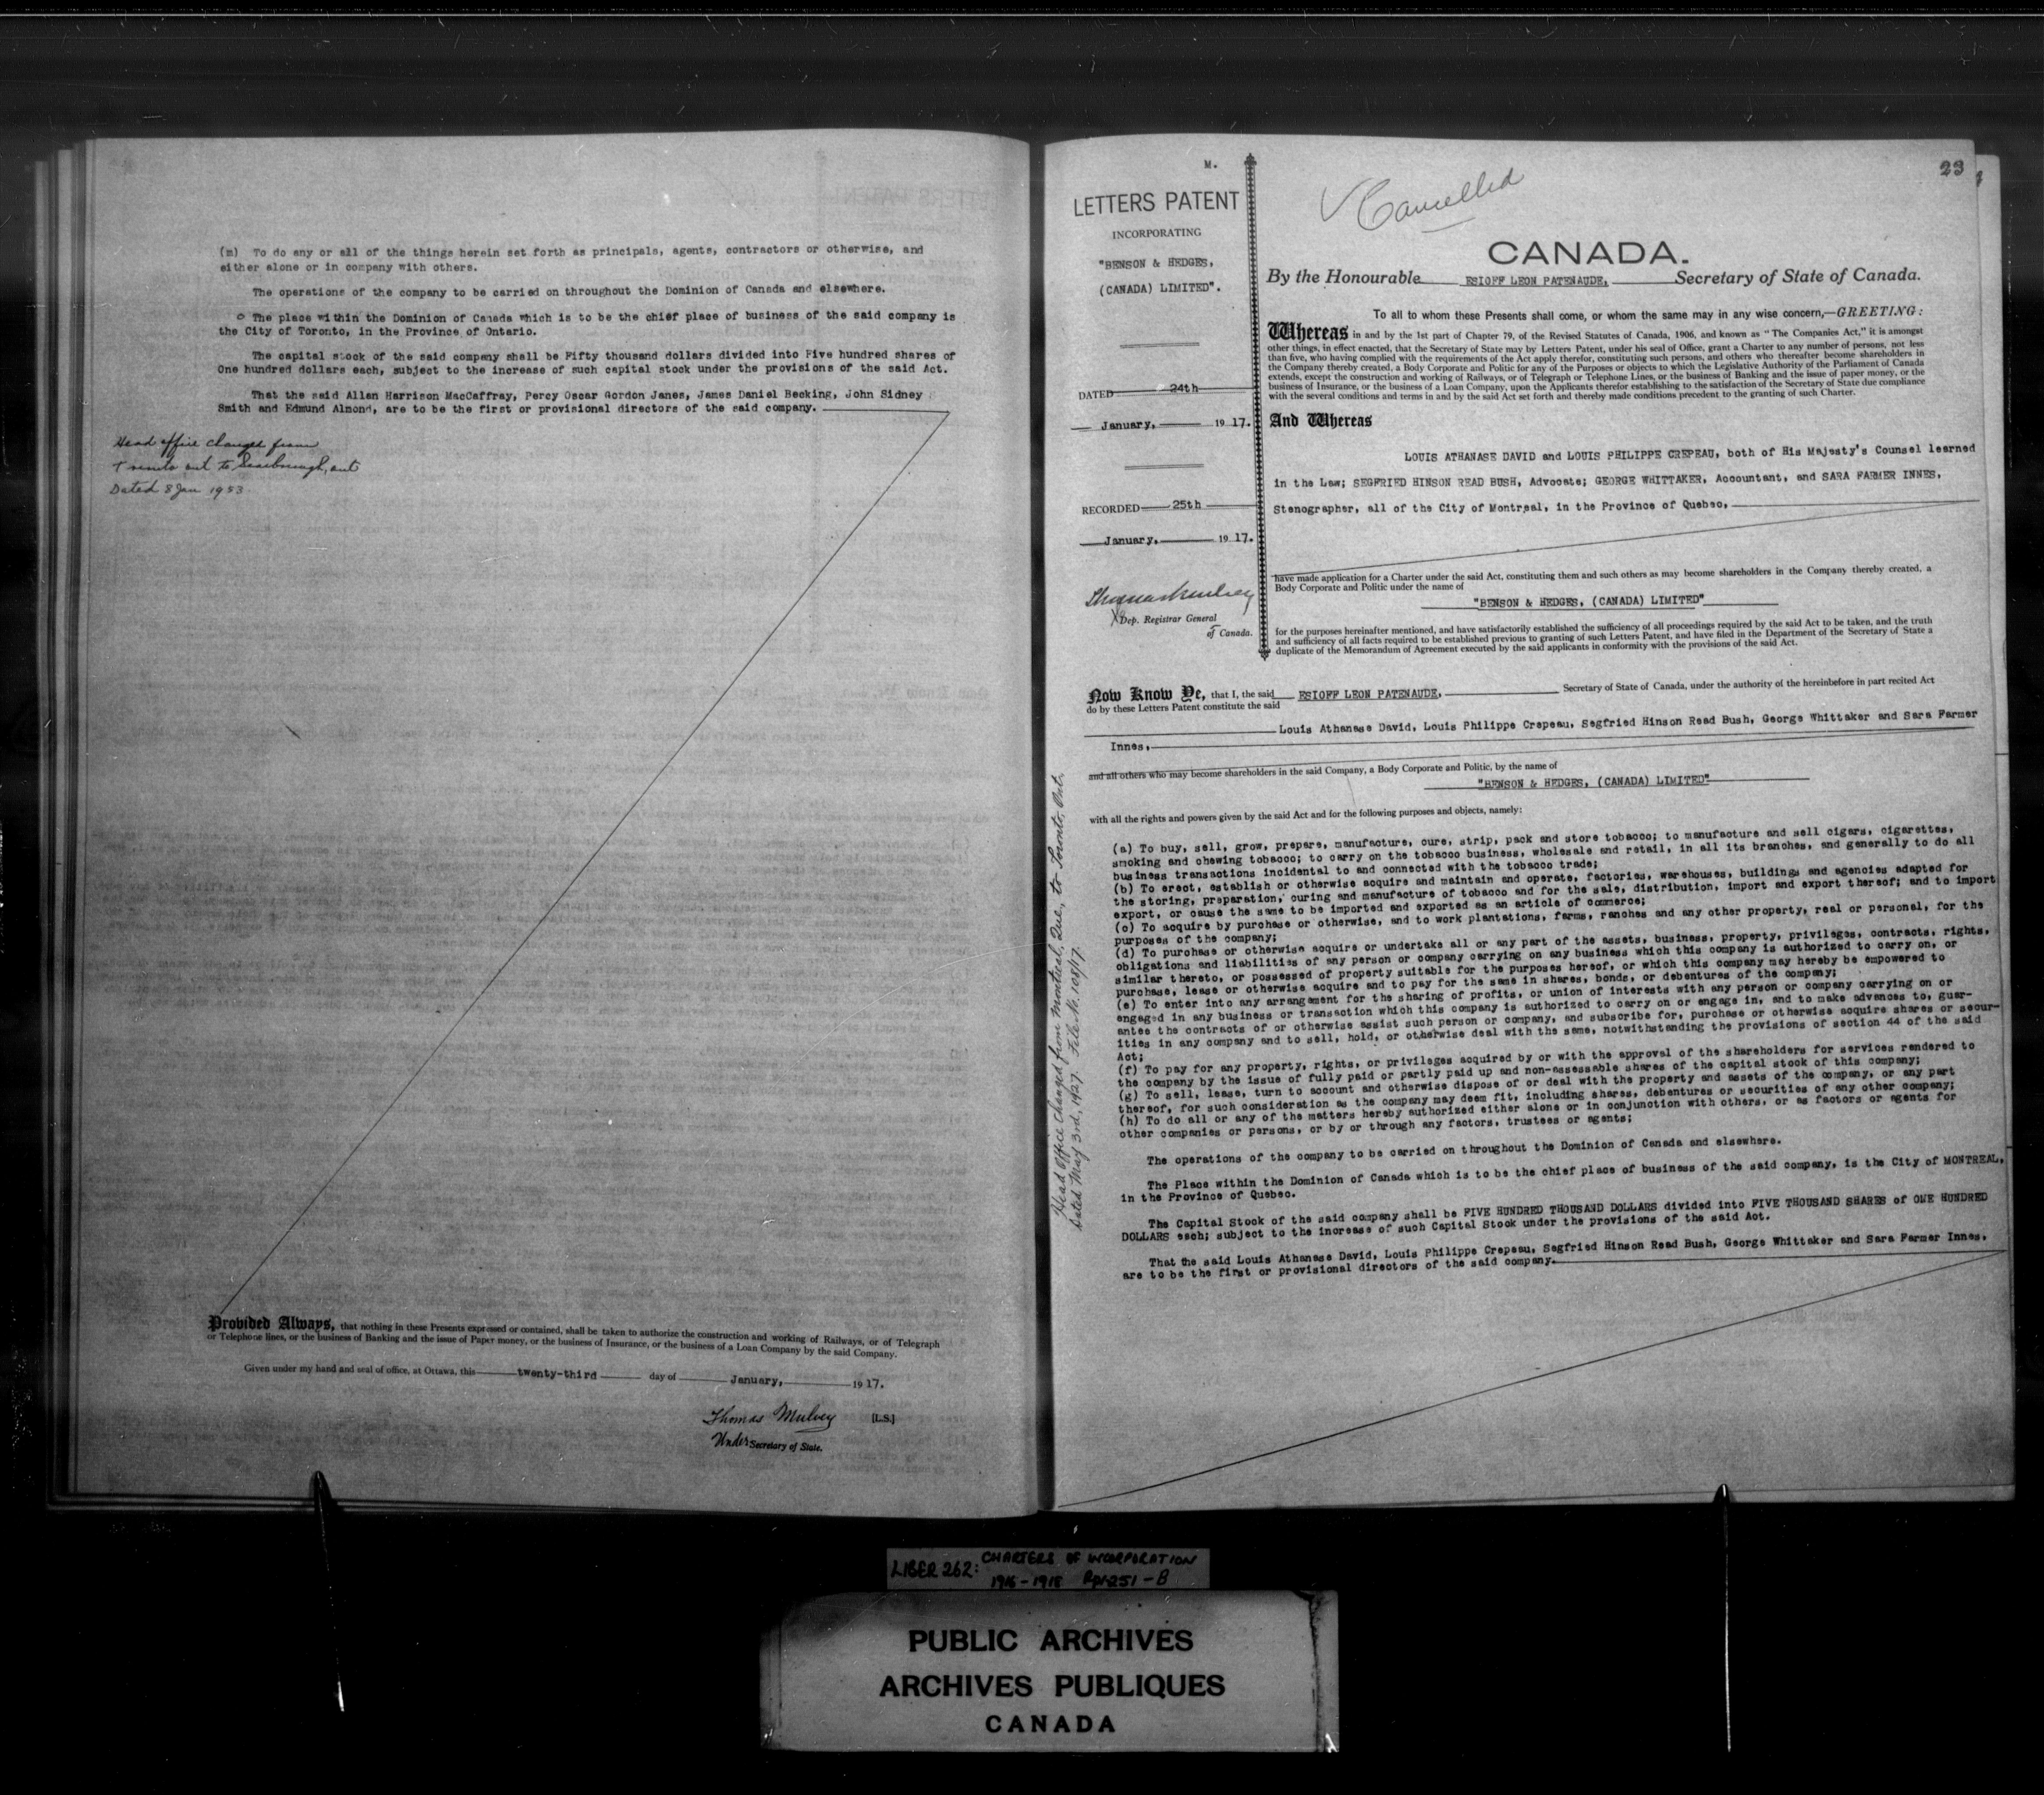 (m) To do any or all of the things herein set forth as principals, agents, contractors or otherwise, and
either alone or in company with others.
The operations of the company to be carried on throughout the Dominion of Canada and elsewhere.
The place within the Dominion of Canada which is to be the chief place of business of the said company is
the City of Toronto, in the Province of Ontario.
The capital stock of the said company shall be Fifty thousand dollars divided into Five hundred shares of
One hundred dollars each, subject to the increase of such capital stock under the provisions of the said Act.
That the said Allan Harrison MacCaffray, Percy Oscar Gordon Janes, James Daniel Becking, John Sidney
Smith and Edmund Almond, are to be the first or provisional directors of the said company.
Head office changes from
Toronto ont to Scarborough, ont
Dated 8 Jan 1953
Provided Always, that nothing in these Presents expressed or contained, shall be taken to authorize the construction and working of Railways, or of Telegraph
or Telephone lines, or the business of Banking and the issue of Paper money, or the business of Insurance, or the business of a Loan Company by the said Company.
Given under my hand and seal of office, at Ottawa, this twenty-third day of January, 1917.
Thomas Mulvey [L.S.]
Under Secretary of State.
M.
23
LETTERS PATENT
INCORPORATING
"BENSON & HEDGES,
(CANADA) LIMITED".
DATED 24th
January, 1917.
RECORDED 25th
January, 1917.
Thomas Mulvey
Dep. Registrar General
of Canada.
Cancelled
CANADA.
By the Honourable ESIOFF LEON PATENAUDE, Secretary of State of Canada.
To all to whom these Presents shall come, or whom the same may in any wise concern,—GREETING:
Whereas in and by the 1st part of Chapter 79, of the Revised Statutes of Canada, 1906, and known as "The Companies Act," it is amongst
other things, in effect enacted, that the Secretary of State may by Letters Patent, under his seal of Office, grant a Charter to any number of persons, not less
than five, who having complied with the requirements of the Act apply therefor, constituting such persons, and others who thereafter become shareholders in
the Company thereby created, a Body Corporate and Politic for any of the Purposes or objects to which the Legislative Authority of the Parliament of Canada
extends, except the construction and working of Railways, or of Telegraph or Telephone Lines, or the business of Banking and the issue of paper money, or the
business of Insurance, or the business of a Loan Company, upon the Applicants therefor establishing to the satisfaction of the Secretary of State due compliance
with the several conditions and terms in and by the said Act set forth and thereby made conditions precedent to the granting of such Charter.
And Whereas
LOUIS ATHANASE DAVID and LOUIS PHILIPPE CREPEAU, both of His Majesty's Counsel learned
in the Law; SEGFRIED HINSON READ BUSH, Advocate; GEORGE WHITTAKER, Accountant, and SARA FARMER INNES,
Stenographer, all of the City of Montreal, in the Province of Quebec,
have made application for a Charter under the said Act, constituting them and such others as may become shareholders in the Company thereby created, a
Body Corporate and Politic under the name of
"BENSON & HEDGES, (CANADA) LIMITED"
for the purposes hereinafter mentioned, and have satisfactorily established the sufficiency of all proceedings required by the said Act to be taken, and the truth
and sufficiency of all facts required to be established previous to granting of such Letters Patent, and have filed in the Department of the Secretary of State a
duplicate of the Memorandum of Agreement executed by the said applicants in conformity with the provisions of the said Act.
Now Know Ye, that I, the said ESIOFF LEON PATENAUDE, Secretary of State of Canada, under the authority of the hereinbefore in part recited Act
do by these Letters Patent constitute the said
Louis Athanase David, Louis Philippe Crepeau, Segfried Hinson Read Bush, George Whittaker and Sara Farmer
Innes,
and all others who may become shareholders in the said Company, a Body Corporate and Politic, by the name of
"BENSON & HEDGES, (CANADA) LIMITED"
with all the rights and powers given by the said Act and for the following purposes and objects, namely:
(a) To buy, sell, grow, prepare, manufacture, cure, strip, pack and store tobacco; to manufacture and sell cigars, cigarettes,
smoking and chewing tobacco; to carry on the tobacco business, wholesale and retail, in all its branches, and generally to do all
business transactions incidental to and connected with the tobacco trade;
(b) To erect, establish or otherwise acquire and maintain and operate, factories, warehouses, buildings and agencies adapted for
the storing, preparation, curing and manufacture of tobacco and for the sale, distribution, import and export thereof; and to import
export, or cause the same to be imported and exported as an article of commerce;
(c) To acquire by purchase or otherwise, and to work plantations, farms, ranches and any other property, real or personal, for the
purposes of the company;
(d) To purchase or otherwise acquire or undertake all or any part of the assets, business, property, privileges, contracts, rights,
obligations and liabilities of any person or company carrying on any business which this company is authorized to carry on, or
similar thereto, or possessed of property suitable for the purposes hereof, or which this company may hereby be empowered to
purchase, lease or otherwise acquire and to pay for the same in shares, bonds, or debentures of the company;
(e) To enter into any arrangement for the sharing of profits, or union of interests with any person or company carrying on or
engaged in any business or transaction which this company is authorized to carry on or engage in, and to make advances to, guar-
antee the contracts of or otherwise assist such person or company, and subscribe for, purchase or otherwise acquire shares or secur-
ities in any company and to sell, hold, or otherwise deal with the same, notwithstanding the provisions of section 44 of the said
Act;
(f) To pay for any property, rights, or privileges acquired by or with the approval of the shareholders for services rendered to
the company by the issue of fully paid or partly paid up and non-assessable shares of the capital stock of this company;
(g) To sell, lease, turn to account and otherwise dispose of or deal with the property and assets of the company, or any part
thereof, for such consideration as the company may deem fit, including shares, debentures or securities of any other company;
(h) To do all or any of the matters hereby authorized either alone or in conjunction with others, or as factors or agents for
other companies or persons, or by or through any factors, trustees or agents;
The operations of the company to be carried on throughout the Dominion of Canada and elsewhere.
The Place within the Dominion of Canada which is to be the chief place of business of the said company, is the City of MONTREAL,
in the Province of Quebec.
The Capital Stock of the said company shall be FIVE HUNDRED THOUSAND DOLLARS divided into FIVE THOUSAND SHARES of ONE HUNDRED
DOLLARS each; subject to the increase of such Capital Stock under the provisions of the said Act.
That the said Louis Athanase David, Louis Philippe Crepeau, Segfried Hinson Read Bush, George Whittaker and Sara Farmer Innes,
are to be the first or provisional directors of the said company.
Head Office Changed from Montreal, Que., to Toronto, Ont.
Dated May 3rd, 1927. File No. 10817.
LIBER 262: CHARTERS OF INCORPORATION
1916-1918 251-B
PUBLIC ARCHIVES
ARCHIVES PUBLIQUES
CANADA